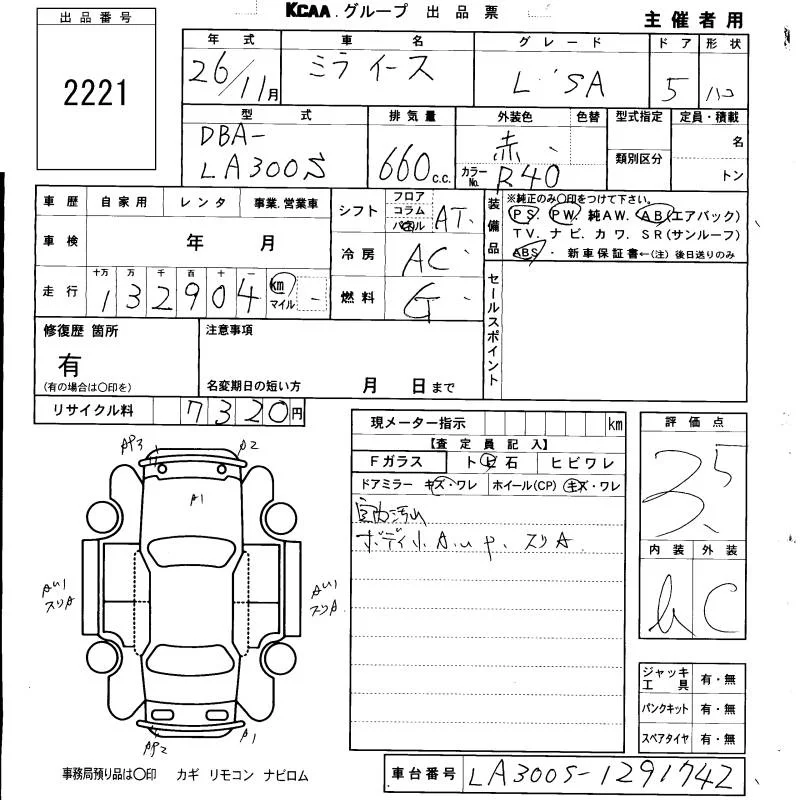 KCAA グループ 出品票
主催者用
出品番号
2221
年式 車名 グレード ドア 形状
26/11月 ミライース L SA 5 ハコ
型式 排気量 外装色 色替 型式指定 定員・積載
DBA-
LA300S 660c.c. 赤 カラーNo. R40 類別区分 名 トン
車歴 自家用 レンタ 事業.営業車
車検 年 月
走行 十万 万 千 百 十 一
132904 km マイル
シフト フロア コラム パネル AT
冷房 AC
燃料 G
装備品 ※純正のみ〇印をつけて下さい。
PS. PW. 純AW. AB(エアバック)
TV. ナビ. カワ. SR(サンルーフ)
ABS・ 新車保証書←(注) 後日送りのみ
セールスポイント
修復歴 箇所
有
(有の場合は〇印を)
注意事項
名変期日の短い方 月 日まで
リサイクル料 7320円
現メーター指示 km
【査定員記入】
Fガラス ト ビ 石 ヒビワレ
ドアミラー キズ・ワレ ホイール(CP) キズ・ワレ
室内汚れ
ボディ小A.u.p. スリA
評価点
3.5
内装 外装
C
ジャッキ 工具 有・無
パンクキット 有・無
スペアタイヤ 有・無
AP3 A2
A1
AU1
スリA
AU1
スリA
AP2 A1
事務局預り品は〇印 カギ リモコン ナビロム
車台番号 LA300S-1291742